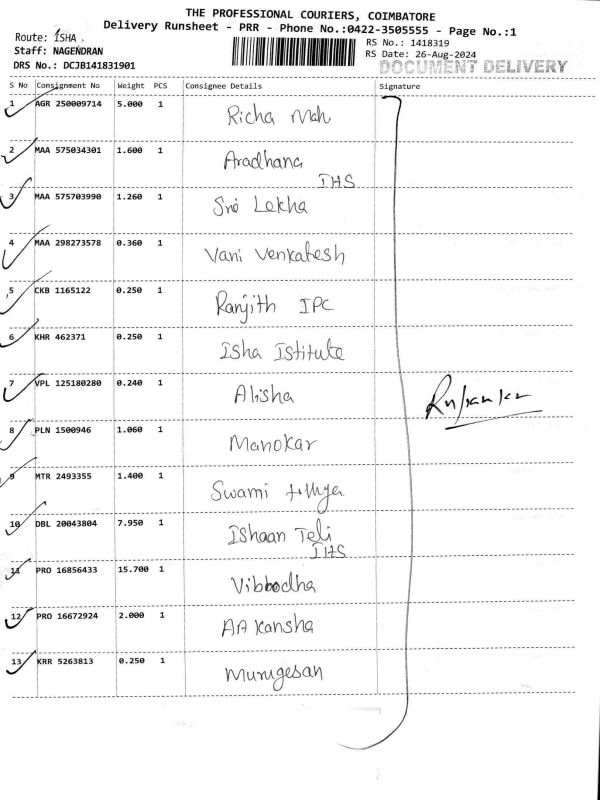 THE PROFESSIONAL COURIERS, COIMBATORE
Delivery Runsheet - PRR - Phone No.:0422-3505555 - Page No.:1
Route: ISHA
Staff: NAGENDRAN
DRS No.: DCJB141831901
RS No.: 1418319
RS Date: 26-Aug-2024
DOCUMENT DELIVERY
S No Consignment No Weight PCS Consignee Details Signature
1 AGR 250009714 5.000 1 Richa Mah
2 MAA 575034301 1.600 1 Aradhana
IHS
3 MAA 575703990 1.260 1 Sri Lekha
4 MAA 298273578 0.360 1 Vani Venkatesh
5 CKB 1165122 0.250 1 Ranjith IPC
6 KHR 462371 0.250 1 Isha Istitute
7 VPL 125180280 0.240 1 Alisha
8 PLN 1500946 1.060 1 Manokar
9 MTR 2493355 1.400 1 Swami
10 DBL 20043804 7.950 1 Ishaan Teli
IHS
11 PRO 16856433 15.700 1 Vibbodha
12 PRO 16672924 2.000 1 AAkansha
13 KRR 5263813 0.250 1 Murugesan